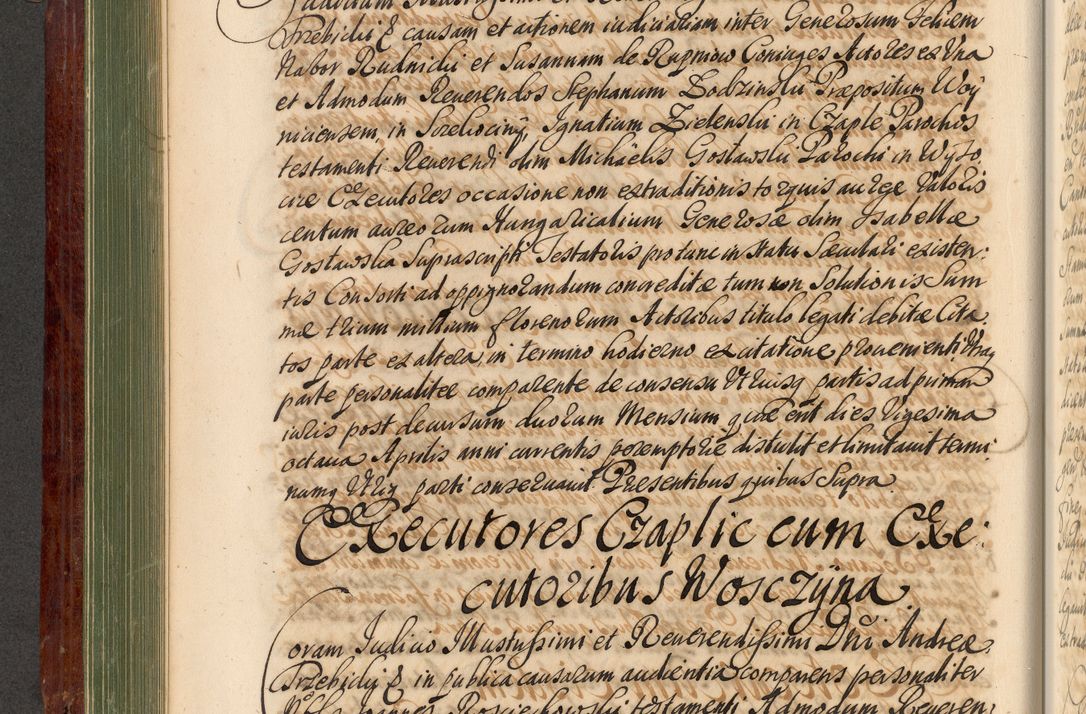 Trzebicki & causam et actionem iudiciariam inter Generosum Felicem
Nabor Rudnicki et Susannam de Rupniow Coniuges Actores ex Vna
et Admodum Reuerendos Stephanum Zodzinski Præpositum Woy
niciensem, in Szreliocing, Ignatium Zielenski in Czaple Parochos
testamenti Reuerendi olim Michaelis Gostawski Parochi in Wyso
cice Executores occasione non extraditionis torquis aureæ Valoris
centum aureorum Hungaricalium Generosæ olim Isabellæ
Gostawska Suprascripti Testatoris pro tunc in statu Sæculari existen:
tis Consorti ad oppignorandum concreditæ tum non Solutionis Sum
mæ trium millium florenorum Actoribus titulo legati debitæ Cita
tos parte ex altera, in termino hodierno ex citatione prouenienti Vtraq
parte personaliter comparente de consensu Vtriusq partis ad primam
iuris post decursum duorum Mensium quæ erit dies Vigesima
octaua Aprilis anni currentis peremptorie distulit et limitauit termi:
numq Vtriq parti conseruauit Præsentibus quibus Supra
Executores Czaplic cum Exe:
cutoribus Wosczyna
Coram Iudicio Illustrissimi et Reuerendissimi Dni Andreæ
Trzebicky & in publica causarum audientia comparens personaliter
Ioannes testamenti Admodum Reueren: